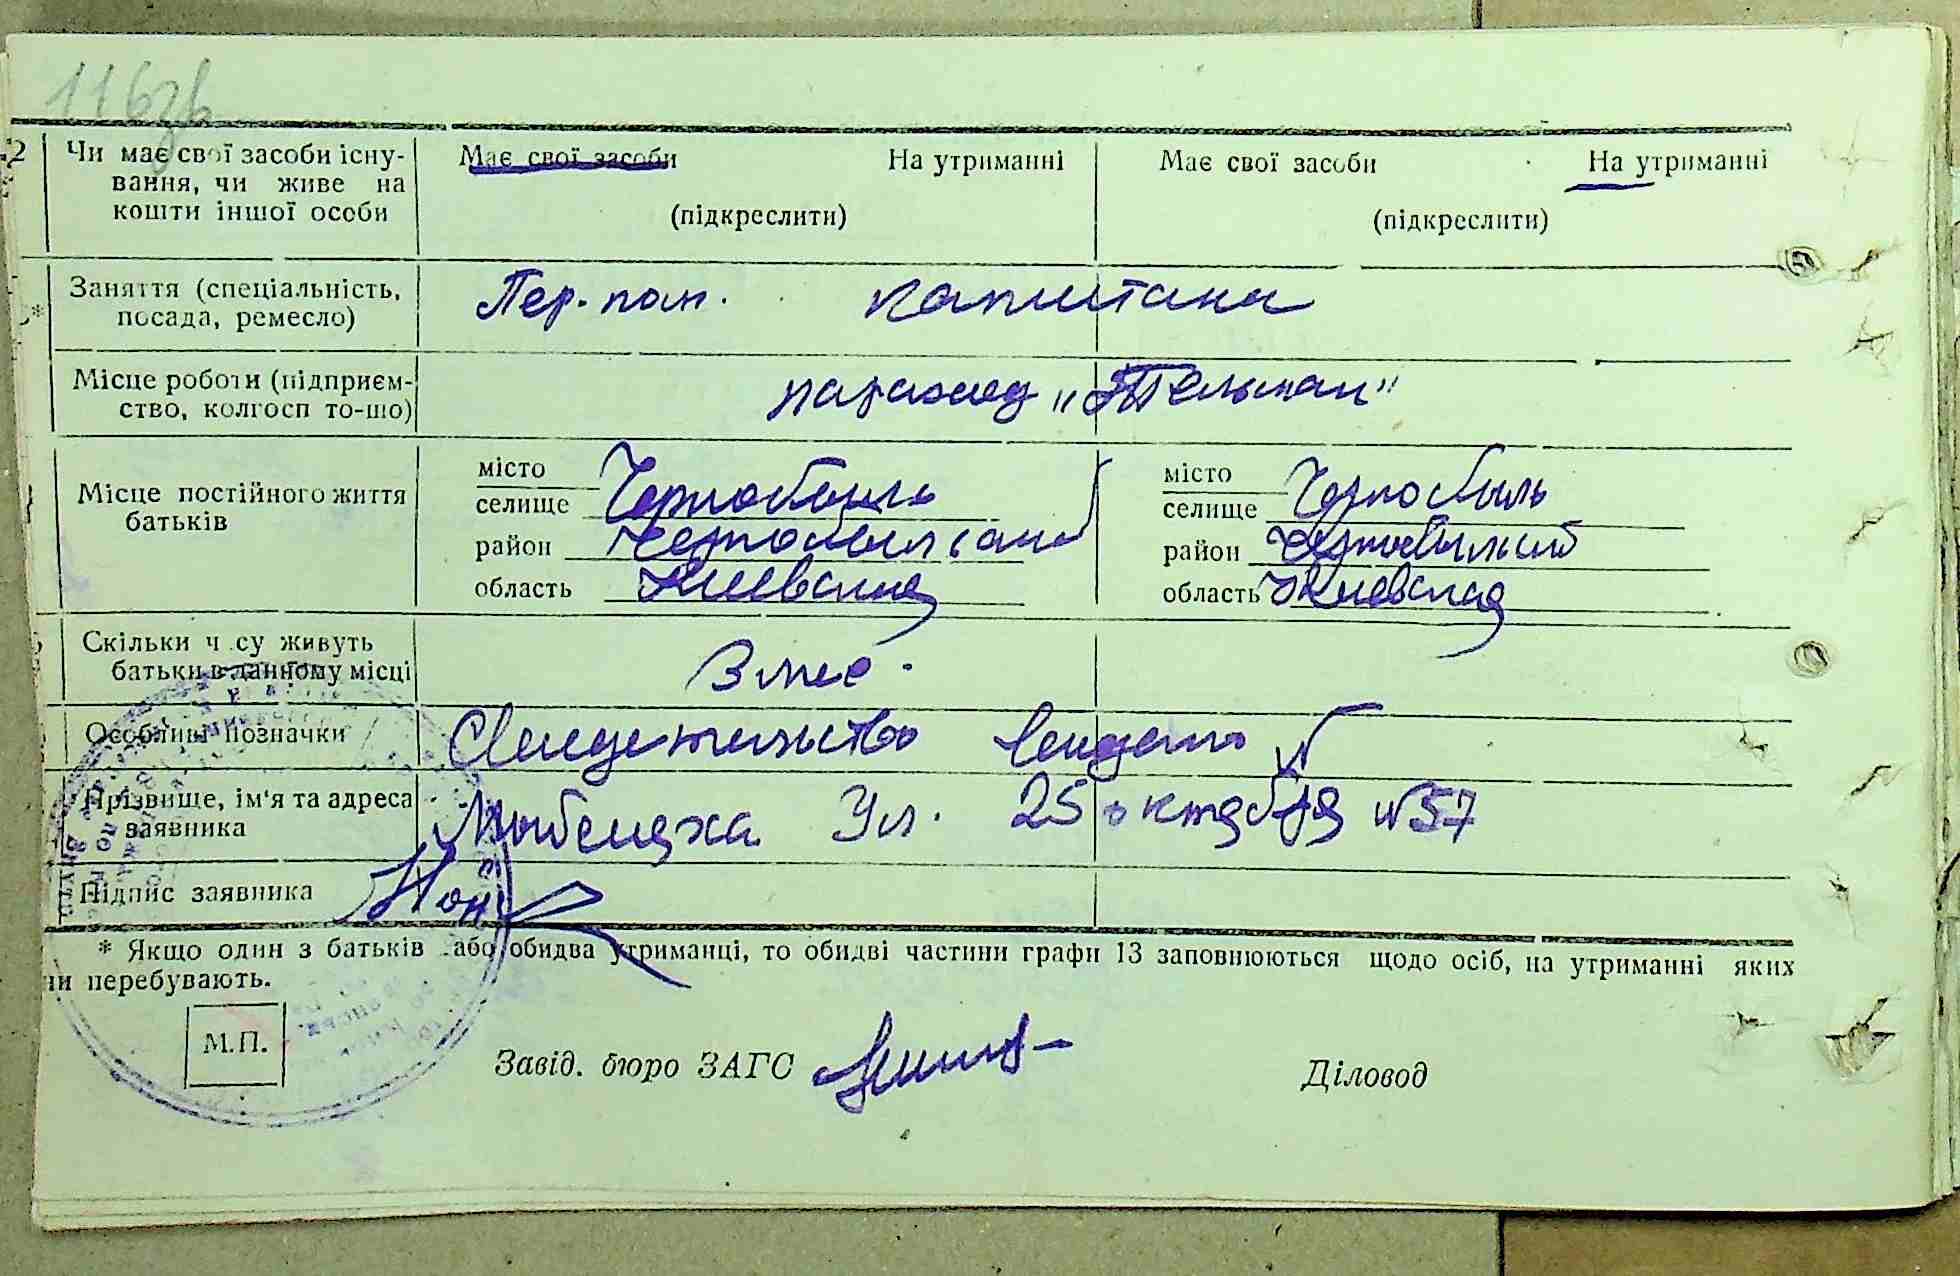 116зв
Чи має свої засоби існу- Має свої засоби На утриманні Має свої засоби На утриманні
вання, чи живе на
кошти іншої особи (підкреслити) (підкреслити)
Заняття (спеціальність, Пер. пом. капитана
посада, ремесло)
Місце роботи (підприєм- пароход „Тельман"
ство, колгосп то-що)
місто Чернобыль місто Чернобыль
Місце постійного життя селище селище
батьків район район
область Киевская область Киевская
Скільки ч су живуть 3 мес.
батьки в данному місці
Особливі позначки Свидетельство
Прізвище, ім'я та адреса Ул. 25 октября №57
заявника
Підпис заявника
* Якщо один з батьків або обидва утриманці, то обидві частини графи 13 заповнюються щодо осіб, на утриманні яких
ни перебувають.
М.П.
Завід. бюро ЗАГС Діловод